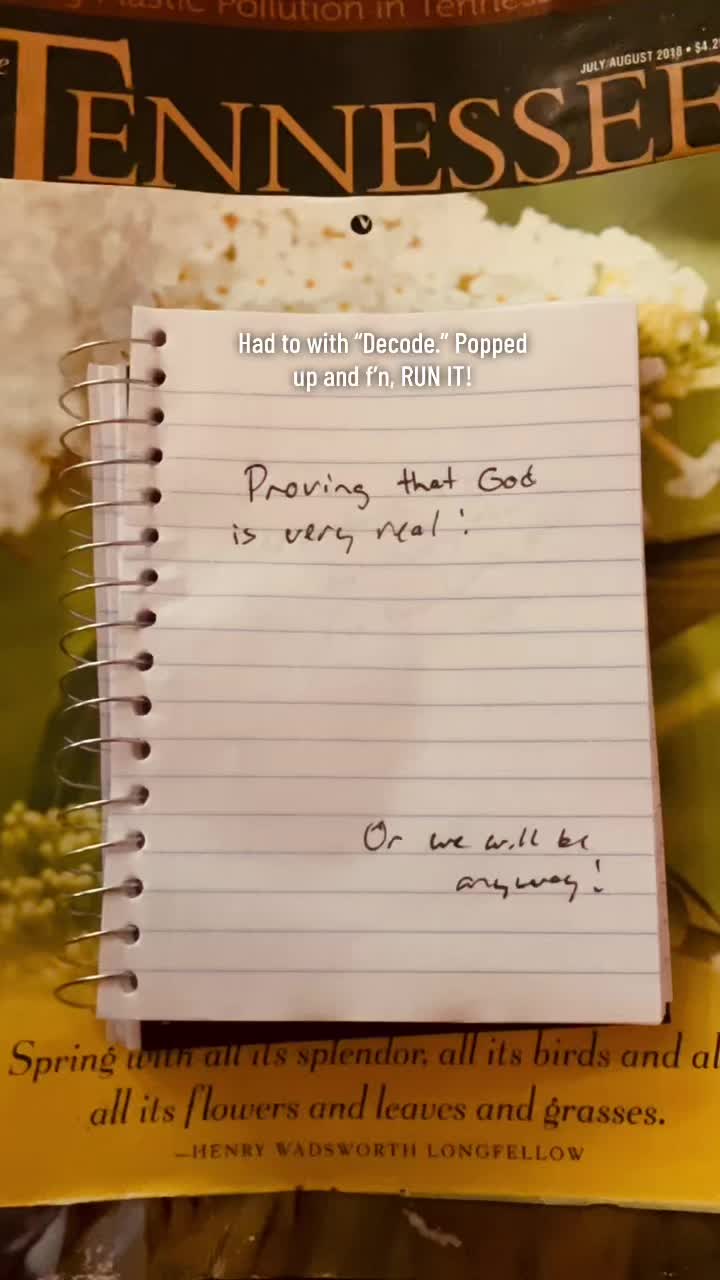 Plastic Pollution in Tennes
JULY/AUGUST 2018 • $4.2
TENNESSEE
Had to with “Decode.” Popped
up and f’n, RUN IT!
Proving that God
is very real!
Or we will be
anyway!
Spring with all its splendor, all its birds and al
all its flowers and leaves and grasses.
—HENRY WADSWORTH LONGFELLOW